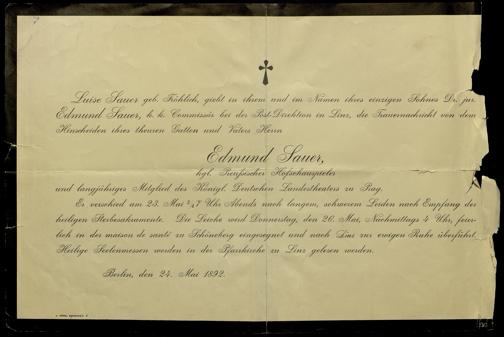 Luise Sauer geb. Fröhlich, giebt in ihrem und im Namen ihres einzigen Sohnes Dr. jur.
Edmund Sauer, k. k. Commissär bei der Post-Direktion in Linz, die Trauernachricht von dem
Hinscheiden ihres theuren Gatten und Vaters Herrn
Edmund Sauer,
kgl. Preußischer Hofschauspieler
und langjähriges Mitglied des Königl. Deutschen Landestheaters zu Prag.
Es verschied am 23. Mai ¾7 Uhr Abends nach langem, schwerem Leiden nach Empfang der
heiligen Sterbesakramente. Die Leiche wird Donnerstag, den 26. Mai, Nachmittags 4 Uhr, feier-
lich in der maison de santé zu Schöneberg eingesegnet und nach Linz zur ewigen Ruhe überführt.
Heilige Seelenmessen werden in der Pfarrkirche zu Linz gelesen werden.
Berlin, den 24. Mai 1892.